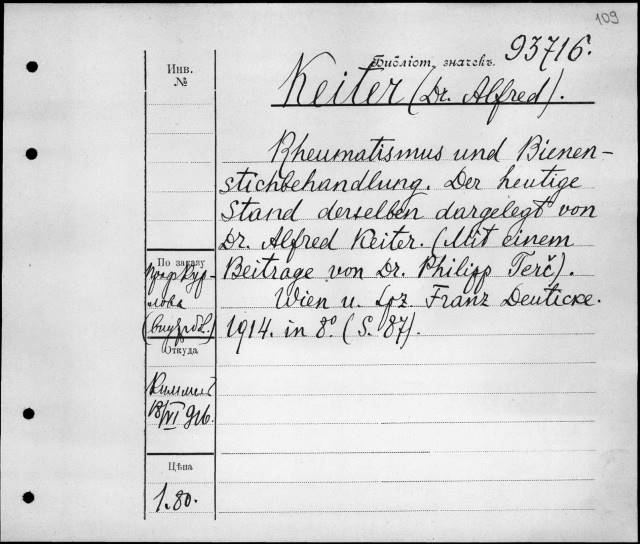 109
Библіот. значекъ. 93716.
Инв.
№
Keiter (Dr. Alfred).
Rheumatismus und Bienen-
stichbehandlung. Der heutige
Stand derselben dargelegt von
Dr. Alfred Keiter. (Mit einem
Beitrage von Dr. Philipp Terč).
Wien u. Lpz. Franz Deuticke.
1914. in 8º. (S. 87).
По заказу
проф. Кур-
лова
Откуда
Киммель
18/VI 916.
Цѣна
1.80.